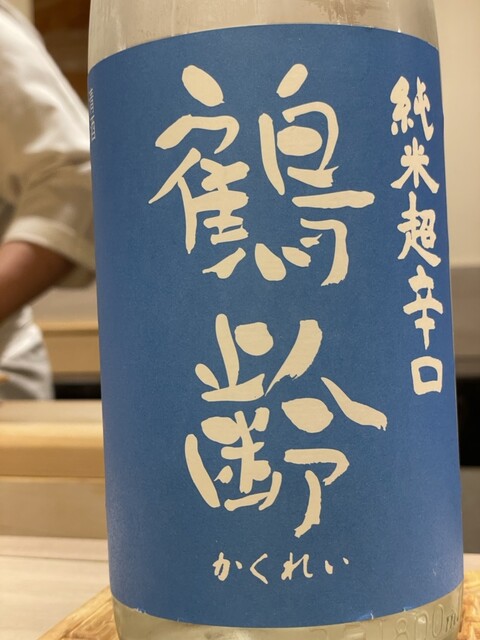 純米超辛口
鶴齢
かくれい